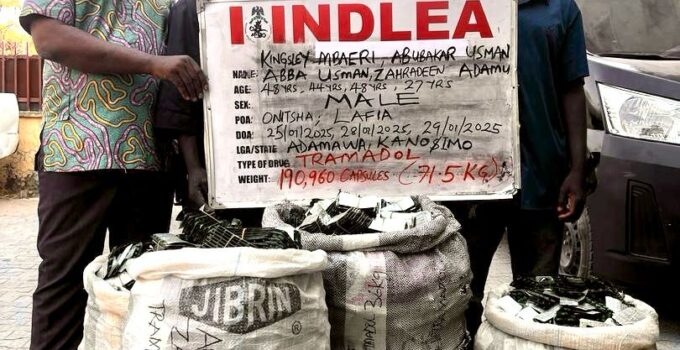 NDLEA
KINGSLEY MBAERI, ABUBAKAR USMAN
NAME: ABBA USMAN, ZAHRADEEN ADAMU
AGE: 48YRS, 44YRS, 48YRS, 27YRS
SEX: MALE
POA: ONITSHA, LAFIA
DOA: 25/01/2025, 28/01/2025, 29/01/2025
LGA/STATE ADAMAWA, KANO & IMO
TYPE OF DRUG: TRAMADOL
WEIGHT: 190,960 CAPSULES (71.5KG)
JIBRIN